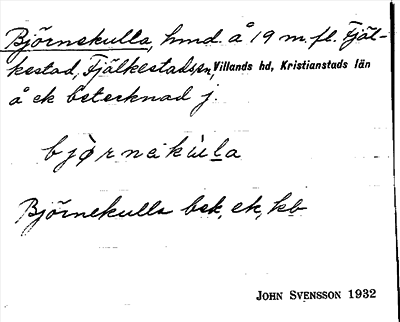 Björnekulla, hmd. å 19 m.fl. Fjäl-
kestad, Fjälkestads sn, Villands hd, Kristianstads län
å ek betecknad j.
bjørnekula
Björnekulla bsk, ek, kb
JOHN SVENSSON 1932